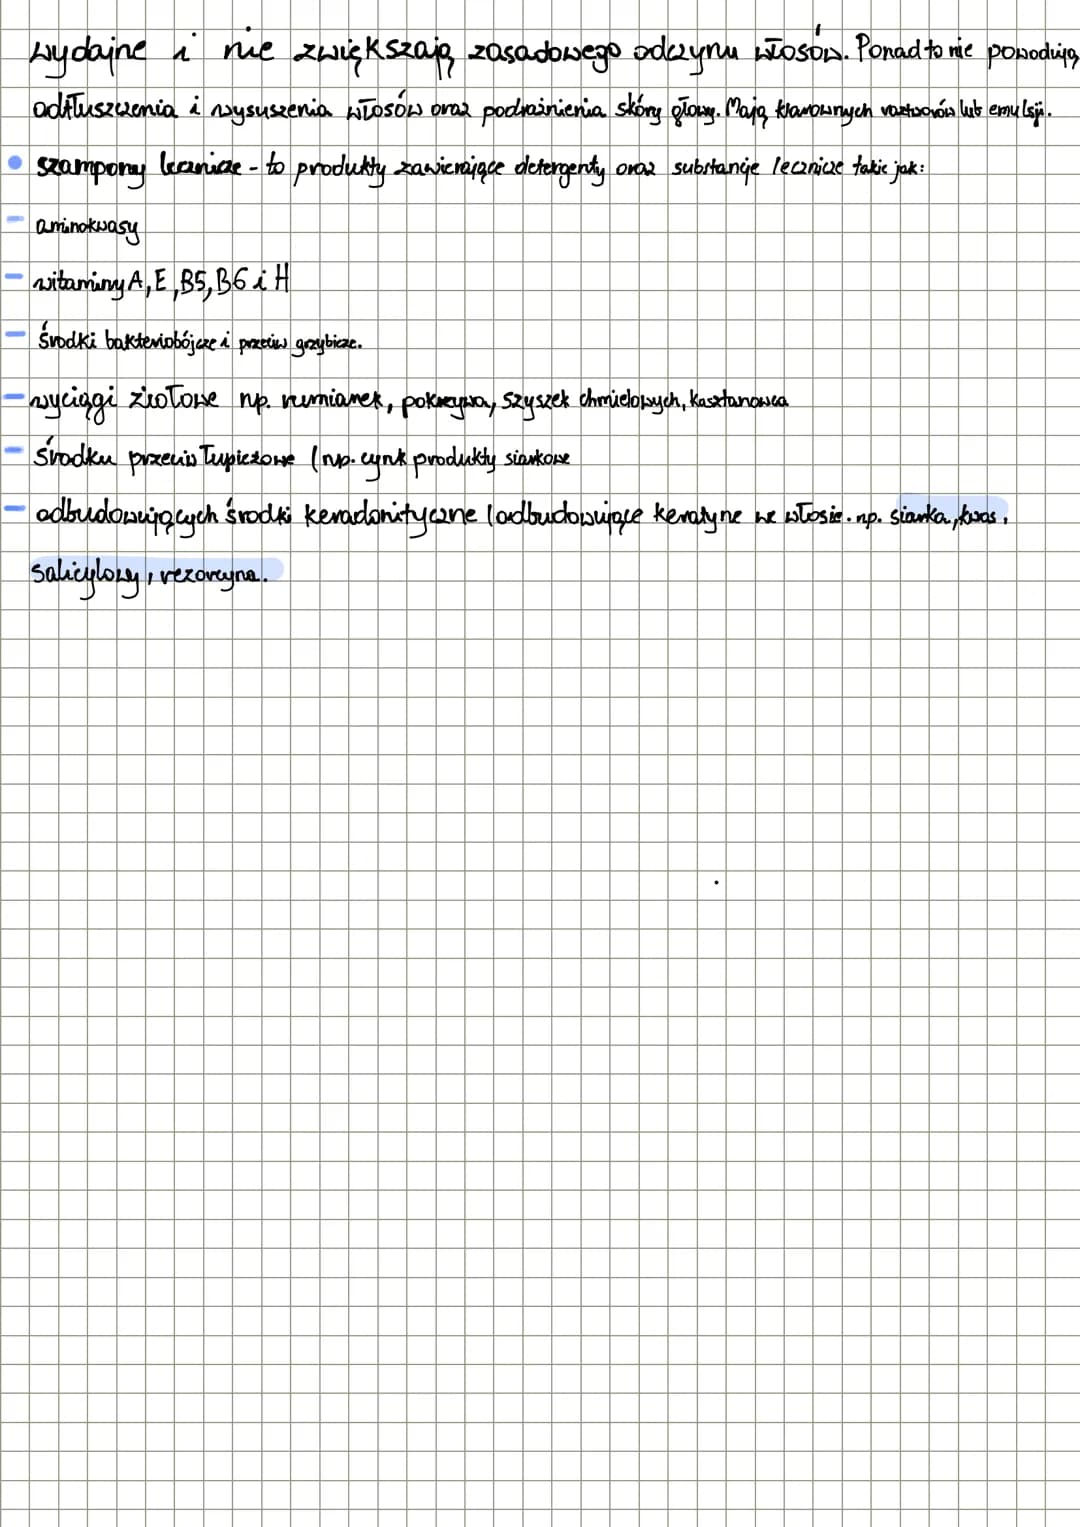 wydajne i nie zwiększają zasadowego odczynu włosów. Ponadto nie powodują
odtłuszczenia i wysuszenia włosów oraz podrażnienia skóry głowy. Mają klarownych roztworów lub emulsji.
szampony lecznicze - to produkty zawierające detergenty oraz substancje lecznicze takie jak:
- aminokwasy
- witaminy A, E, B5, B6 i H
- środki bakteriobójcze i przeciw grzybicze.
- wyciągi ziołowe np. rumianek, pokrzywa, szyszek chmielowych, kasztanowca
- środku przeciw łupieżowe (np. cynk produkty siarkowe
- odbudowujących środki keradonityczne (odbudowujące keratyne we włosie. np. siarka, kwas,
salicylowy, rezorcyna.